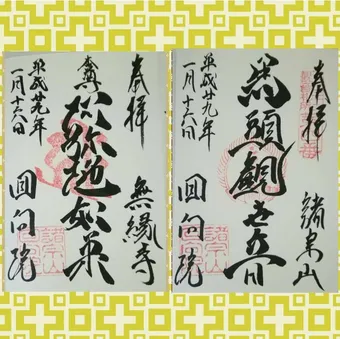 奉拝
無縁寺
本尊
阿弥陀如来
平成廿九年
一月十六日
回向院
奉拝
諸宗山
馬頭観世音
平成廿九年
一月十六日
回向院